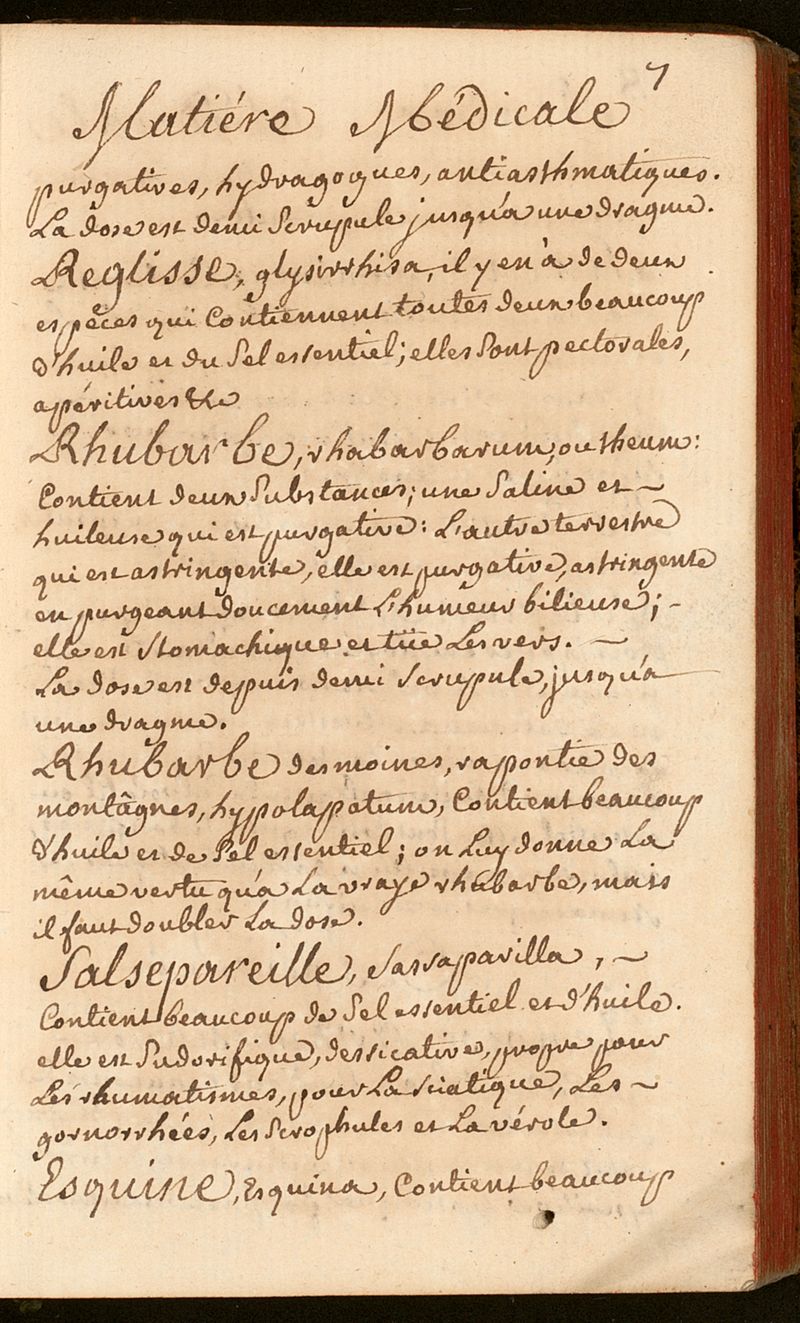 7
Matiére Médicale
purgatives, hydragogues, antiasthmatiques.
La dose est demi Scrupule jusqu'a une dragme.
Reglisse, glysirrhisa, il y en'a de deux
espêces qui Contiennent toutes deux beaucoup
d'huile et du Sel essentiel; elles Sont pectorales,
apéritives &c
Rhubarbe, rhabarbarum, ou rheum:
Contient deux Substances; une Saline et ~
huileuse qui est purgative: L'autre terrestre
qui est astringente, elle est purgative, astringente
en purgeant doucement L'humeur bilieuse; -
elle est Stomachique et tüe Les vers. ~
La dose est depuis demi scrupule, jusqu'a
une dragme.
Rhubarbe des moines, rapontic des
montâgnes, hypolapatum, Contient beaucoup
d'huile et de Sel essentiel; on Luy donne La
même vertu qu'a La vraye rhubarbe, mais
il faut doubler La dose.
Salsepareille, Sarsaparilla, ~
Contient beaucoup de Sel essentiel et d'huile.
elle est Sudorifique, dessicative, propre pour
Les rhumatismes, pour La Sciatique, Les ~
gornorrhées, Les Scrophules et La vérole.
Esquine, Esquina, Contient beaucoup